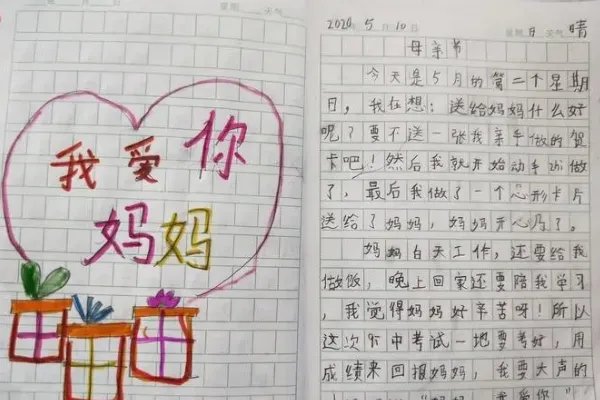 我爱你
妈妈
2020年5月10日 星期日 天气 晴
母亲节
今天是5月的第二个星期
日，我在想：送给妈妈什么好
呢？要不送一张我亲手做的贺
卡吧！然后我就开始动手做
了，最后我做了一个心形卡片
送给了妈妈，妈妈开心乃了。
妈妈白天工作，还要给我
做饭，晚上回家还要陪我学习
，我觉得妈妈好辛苦呀！所以
这次期中考试一地要考好，用
成绩来回报妈妈，我要大声的
"妈妈 我爱你"